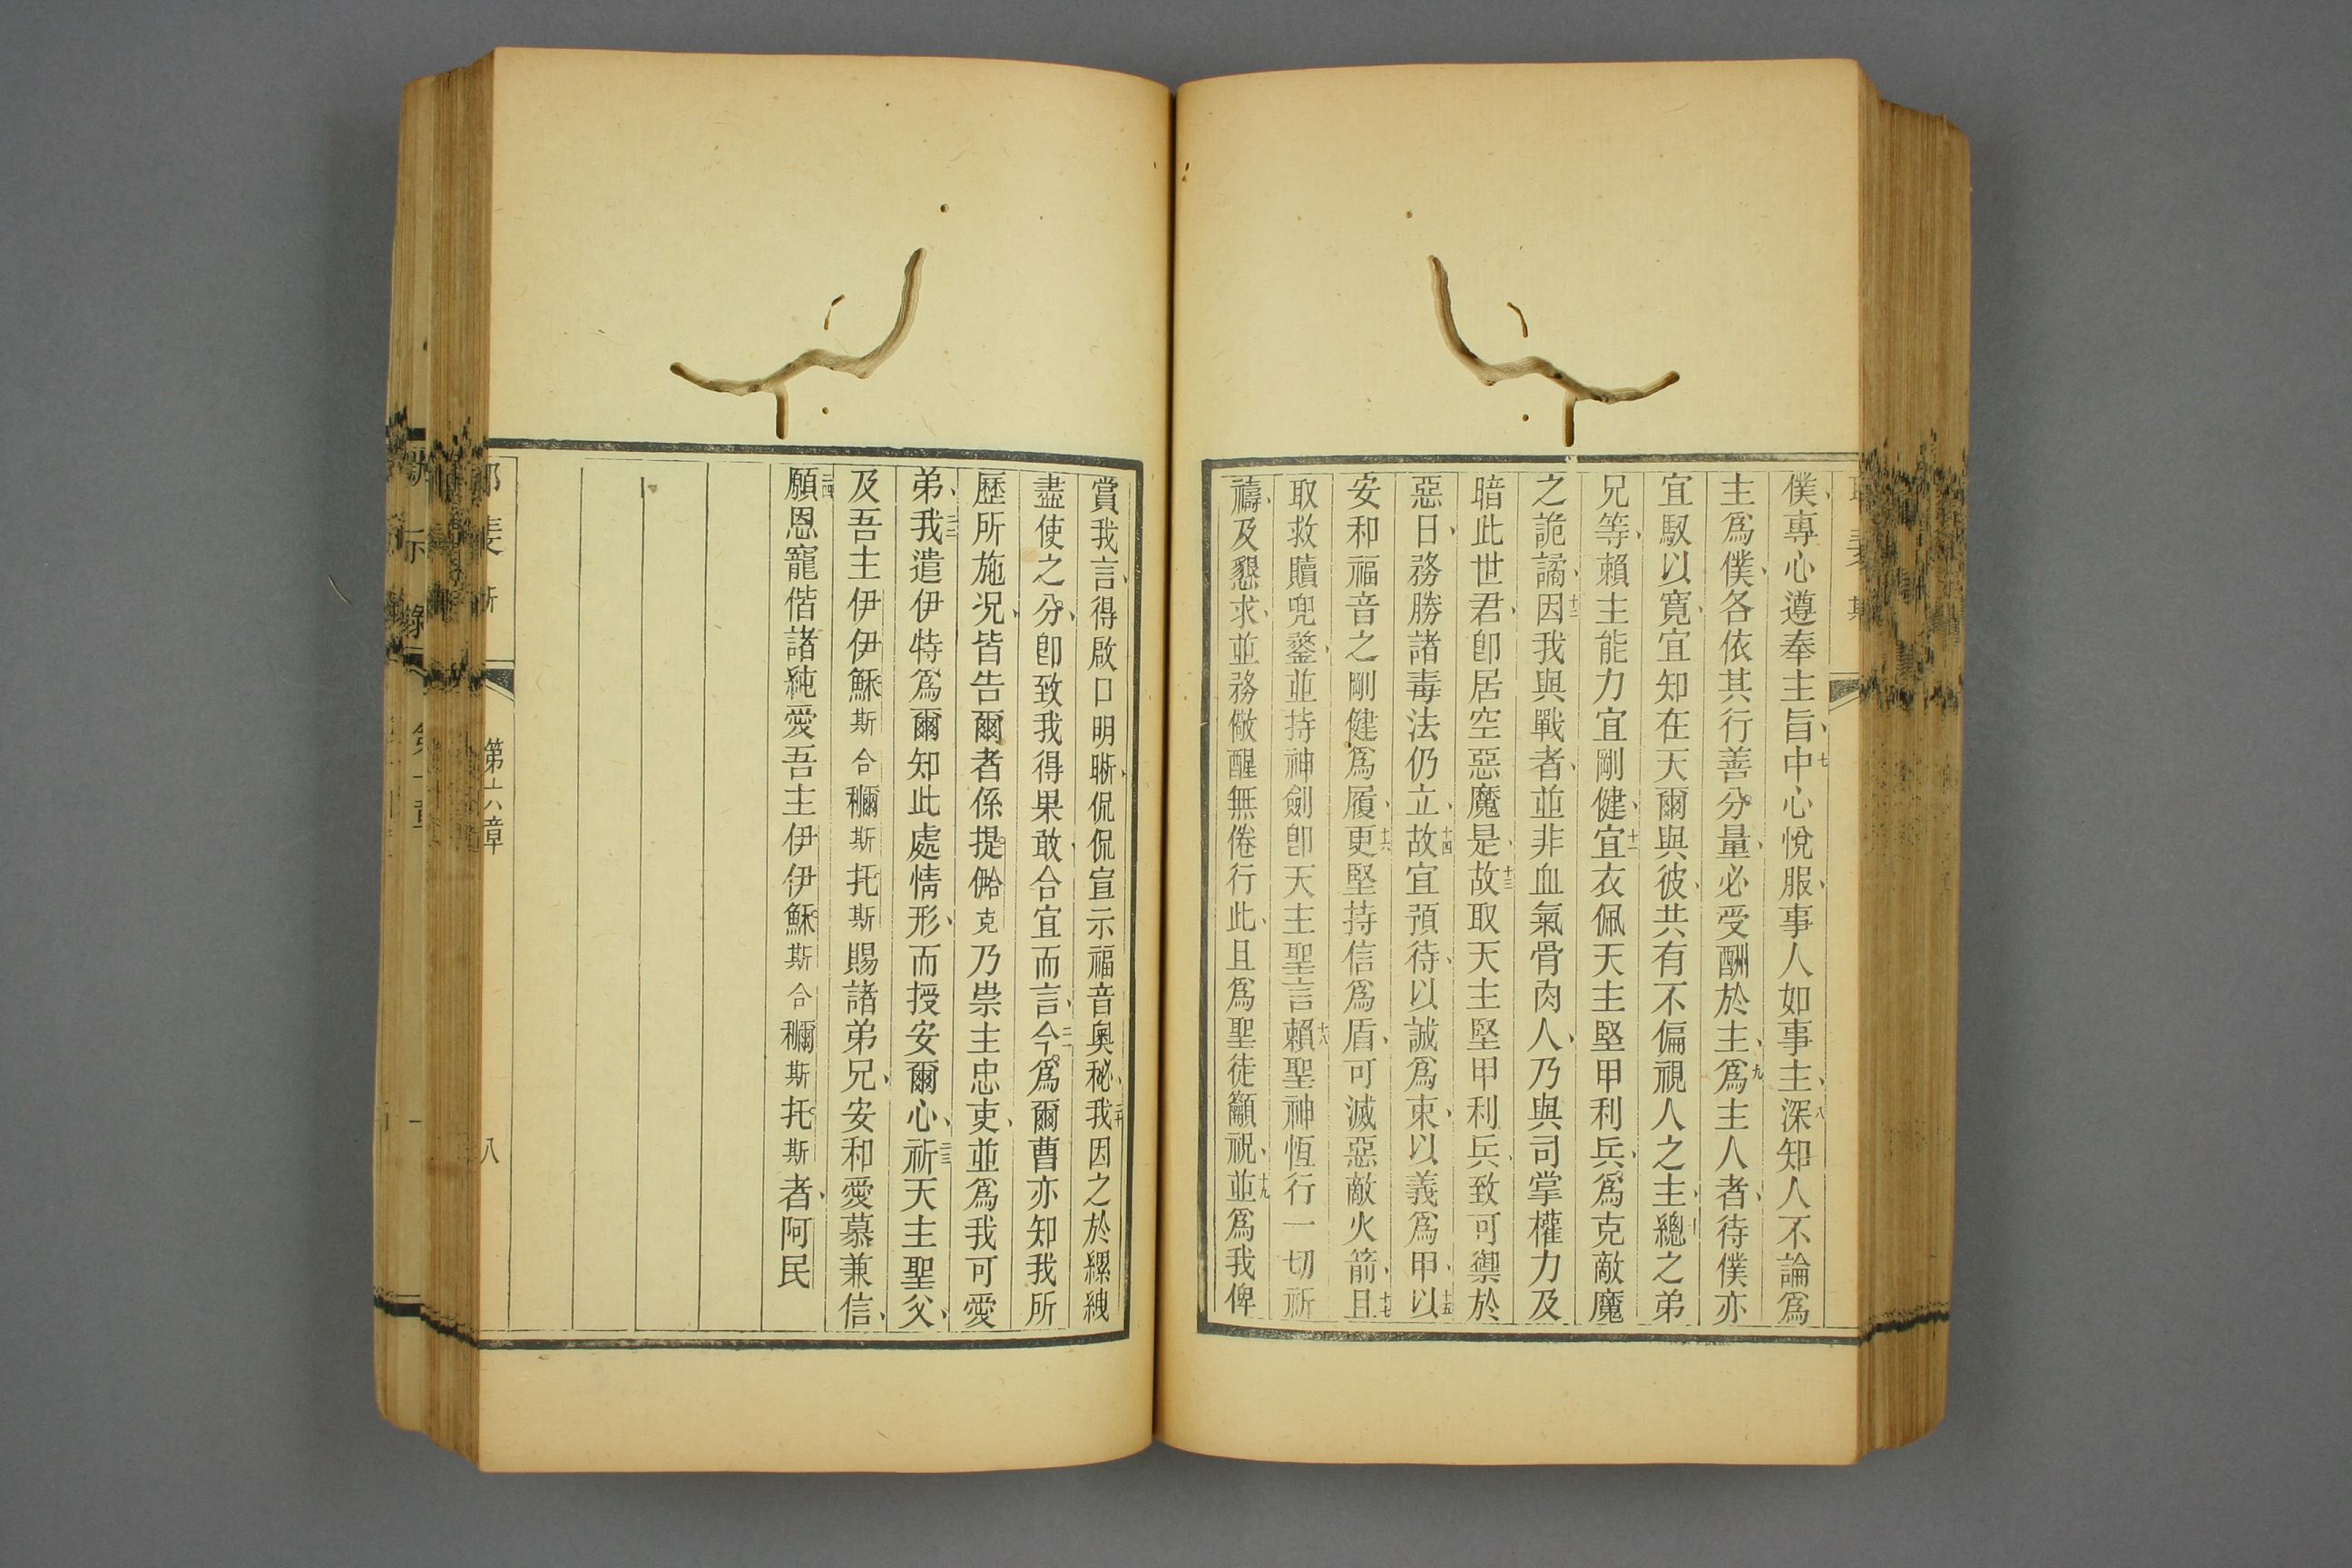 僕、專心遵奉主旨、七中心悅服、事人如事主、八深知人不論爲
主爲僕、各依其行善分量、必受酬於主、九爲主人者、待僕亦
宜馭以寬、宜知在天爾與彼、共有不偏視人之主、總之弟
兄等、賴主能力宜剛健、十一宜衣佩天主堅甲利兵、爲克敵魔
之詭譎、十二因我與戰者、並非血氣骨肉人、乃與司掌權力及
暗此世君、卽居空惡魔是、十三故取天主堅甲利兵、致可禦於
惡日、務勝諸毒法仍立、十四故宜預待、以誠爲束、以義爲甲、十五以
安和福音之剛健爲履、十六更堅持信爲盾、可滅惡敵火箭、十七且
取救贖兜鍪、並持神劍卽天主聖言、十八賴聖神恆行一切祈
禱、及懇求、並務儆醒無倦行此、且爲聖徒籲祝、十九並爲我俾
賞我言、得啟口明晰、侃侃宣示福音奧秘、二十我因之於縲絏
盡使之分、卽致我得果敢、合宜而言、二一今爲爾曹亦知我所
歷所施况、皆告爾者係提僯克乃崇主忠吏、並爲我可愛
弟、二二我遣伊特爲爾知此處情形、而授安爾心、二三祈天主聖父、
及吾主伊伊穌斯合穪斯托斯賜諸弟兄、安和愛慕兼信、
二四願恩寵偕諸純愛吾主伊伊穌斯合穪斯托斯者、阿民
第六章
八